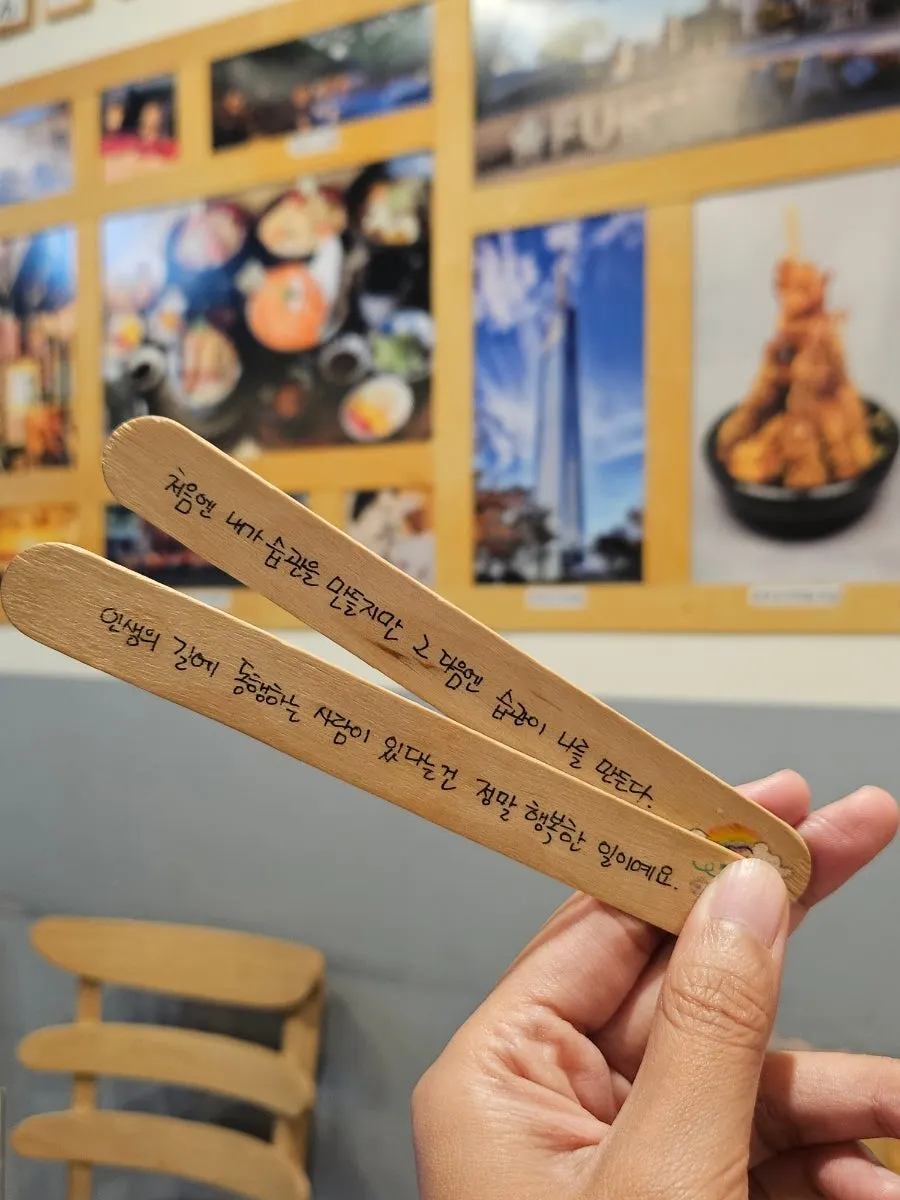 처음엔 내가 습관을 만들지만 그 다음엔 습관이 나를 만든다.
인생의 길에 동행하는 사람이 있다는건 정말 행복한 일이예요.